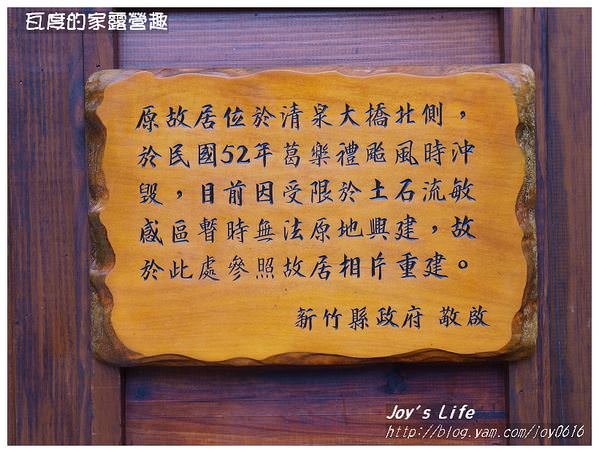 瓦度的家露營趣
原故居位於清泉大橋北側，
於民國52年葛樂禮颱風時沖
毀，目前因受限於土石流敏
感區暫時無法原地興建，故
於此處參照故居相片重建。
新竹縣政府 敬啟
Joy's Life
http://blog.yam.com/joy0616